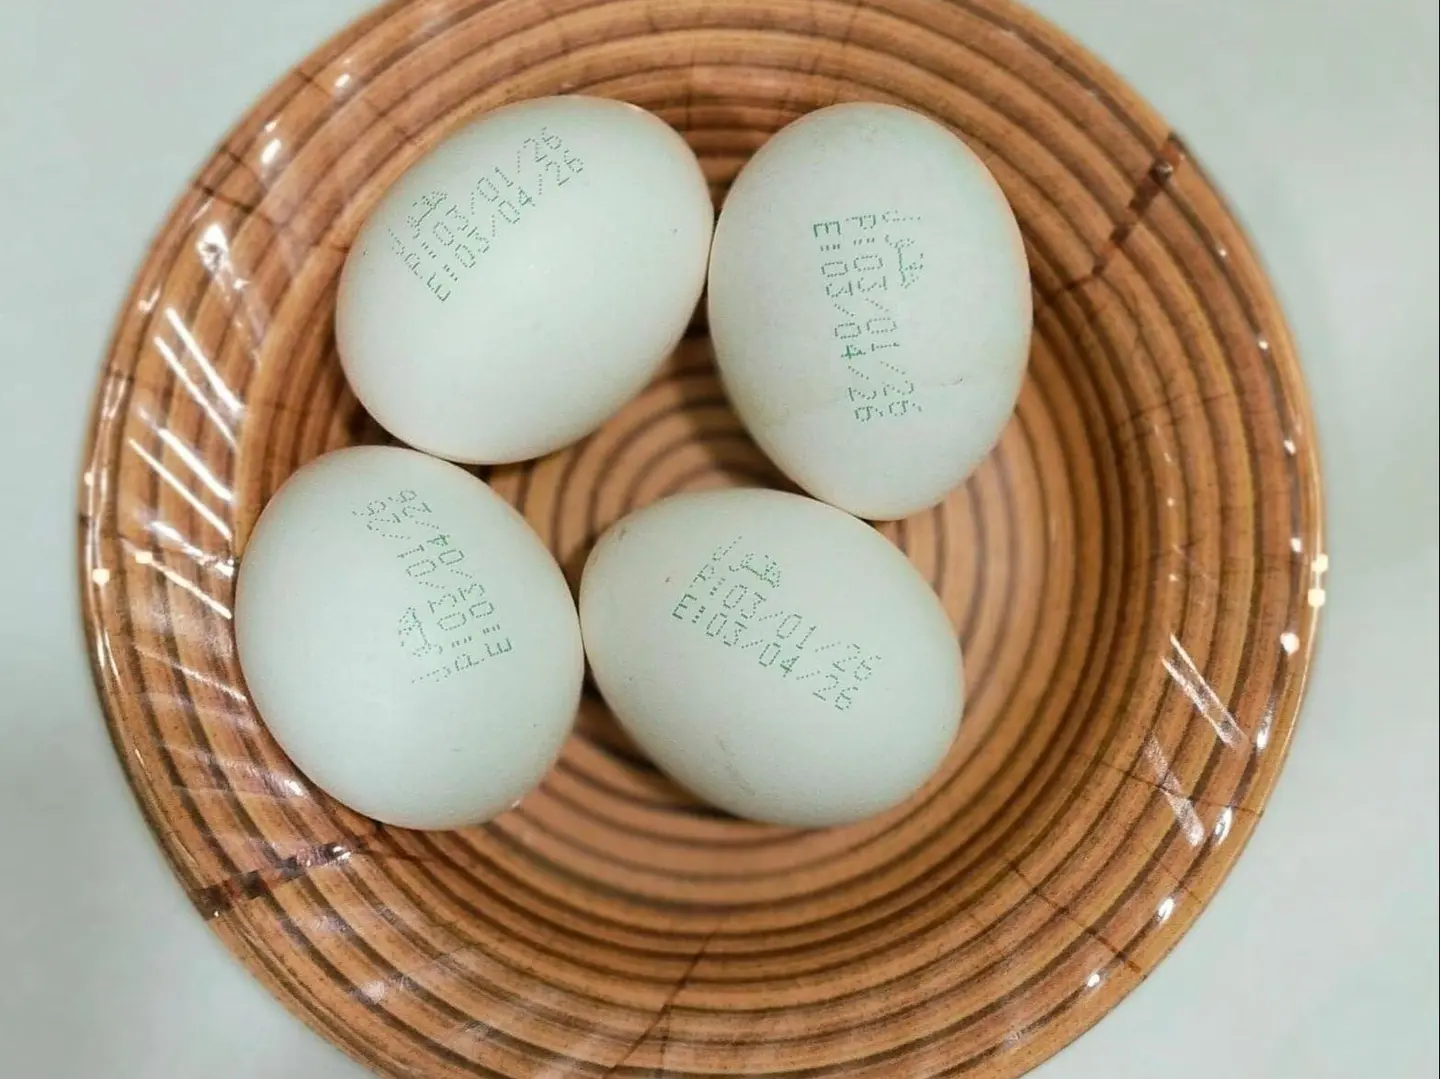 P:03/01/26
E:03/04/26
P:03/01/26
E:03/04/26
P:03/01/26
E:03/04/26
P:03/01/26
E:03/04/26